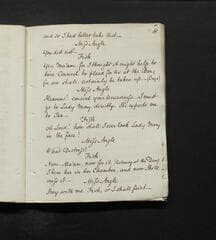 and so I had better take that —
Miss Angle
You did not!
Fish
Yes Ma'am, for I thought it might help to
hire Council to plead for us at the Bar,
for we shall certainly be taken up. — (Cry)
Miss Angle
Heavens! conceal your . I must
go to Lady Mary directly. She expects me
to Tea —
Fish
Oh Lord! how shall I ever look Lady Mary
in the face!
Miss Angle
What Distress!
Fish
Now, Ma'am, now for it.
I hear her in her Chamber, and now she'll
miss it —
Miss Angle
Hey with me Fish, or I shall faint —